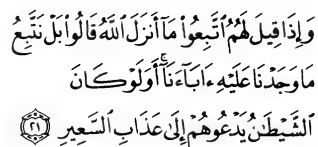 وَإِذَا قِيلَ لَهُمُ ٱتَّبِعُوا۟ مَآ أَنزَلَ ٱللَّهُ قَالُوا۟ بَلْ نَتَّبِعُ
مَا وَجَدْنَا عَلَيْهِ ءَابَآءَنَآ ۚ أَوَلَوْ كَانَ
ٱلشَّيْطَـٰنُ يَدْعُوهُمْ إِلَىٰ عَذَابِ ٱلسَّعِيرِ ٢١